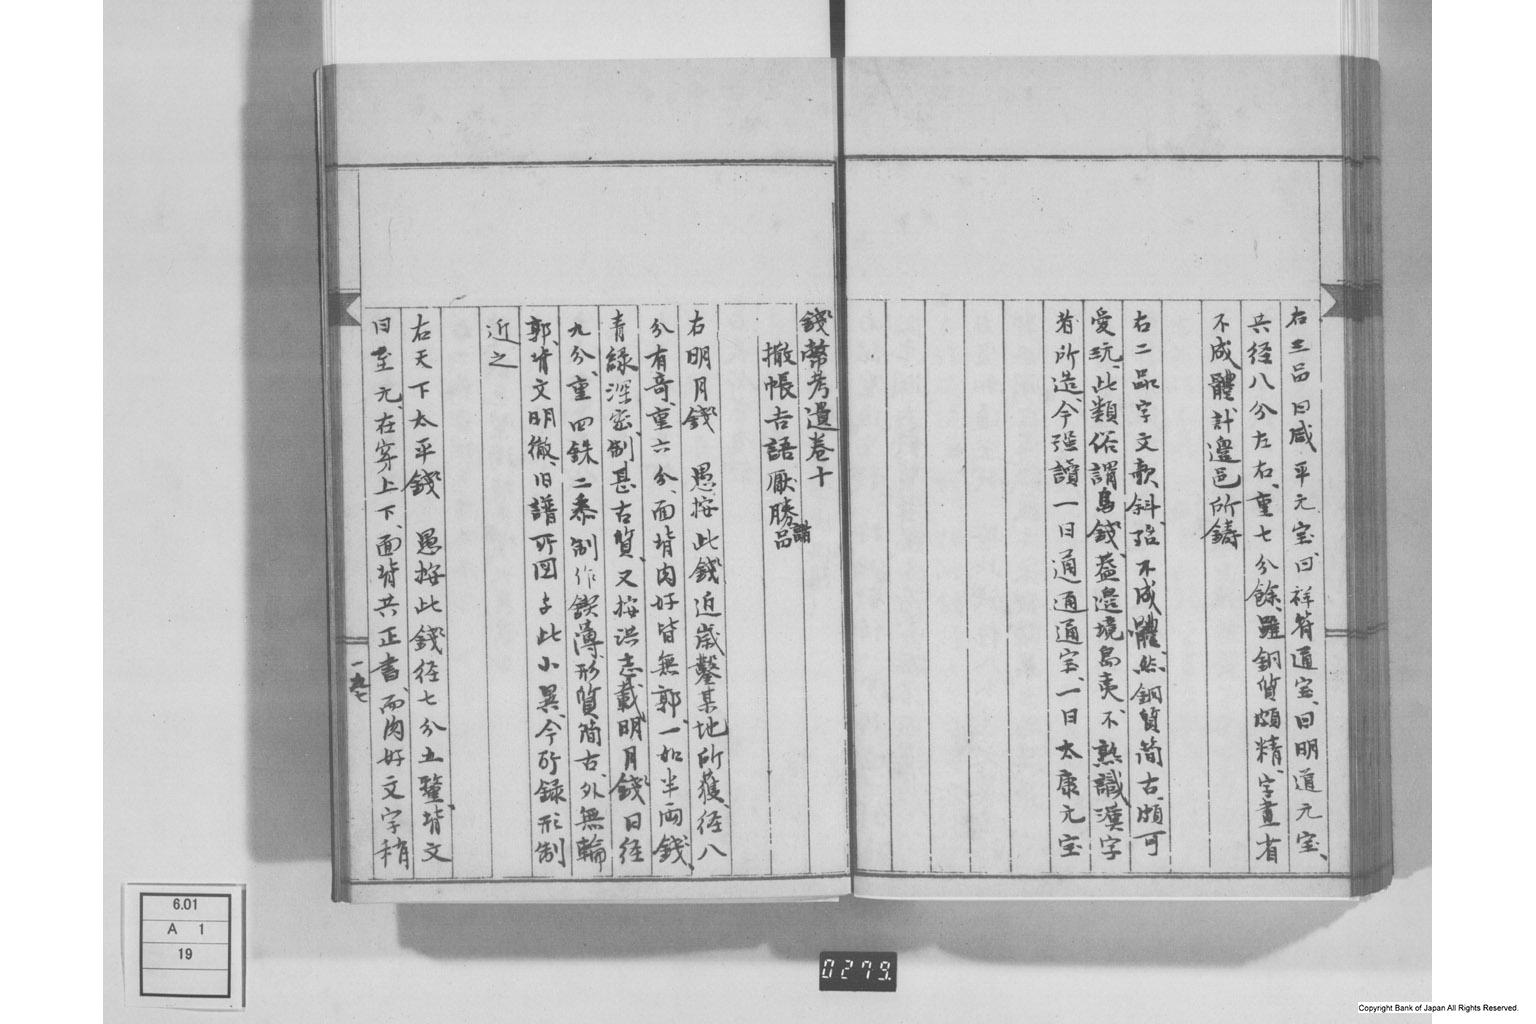 右三品曰咸平元宝、曰祥符通宝、曰明道元宝、
共径八分左右、重七分餘、雖銅質頗精、字畫省
不成體計邊邑所鋳
右二品字文欹斜、殆不成體、然銅質簡古、頗可
愛玩、此類俗謂島錢、蓋邊境島夷不熟識漢字
者所造、今強讀一曰通通通宝、一曰太康元宝
錢幣考遺巻十
撒帳吉語厭勝諸品
右明月錢 愚按此錢近歳鑿某地所獲、径八
分有竒、重六分、面背肉好皆無郭、一如半両錢、
青緑深密、制甚古質、又按洪志載明月錢曰径
九分、重四銖二黍制作鍥薄形質簡古、外無輪
郭、背文明徹、旧譜所図与此小異、今所録形制
近之
右天下太平錢 愚按此錢径七分五釐、背文
曰至元、在穿上下、面背共正書、而肉好文字稍
一九七
6.01
A 1
19
0279.
Copyright Bank of Japan All Rights Reserved.